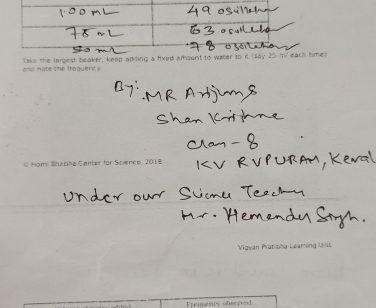 100 mL 49 osillation
75 mL 63 osillation
50 mL 78 osillation
Take the largest beaker, keep adding a fixed amount to water to it. (say 25 ml each time)
and note the frequency
By: MR Arjun S
Shan Krishne
Class - 8
© Homi Bhabha Center for Science, 2018
KV RVPURAM, Keral
under our Science Teacher
Mr. Hemender Singh.
Vigyan Pratibha Learning Unit
Frequency observed